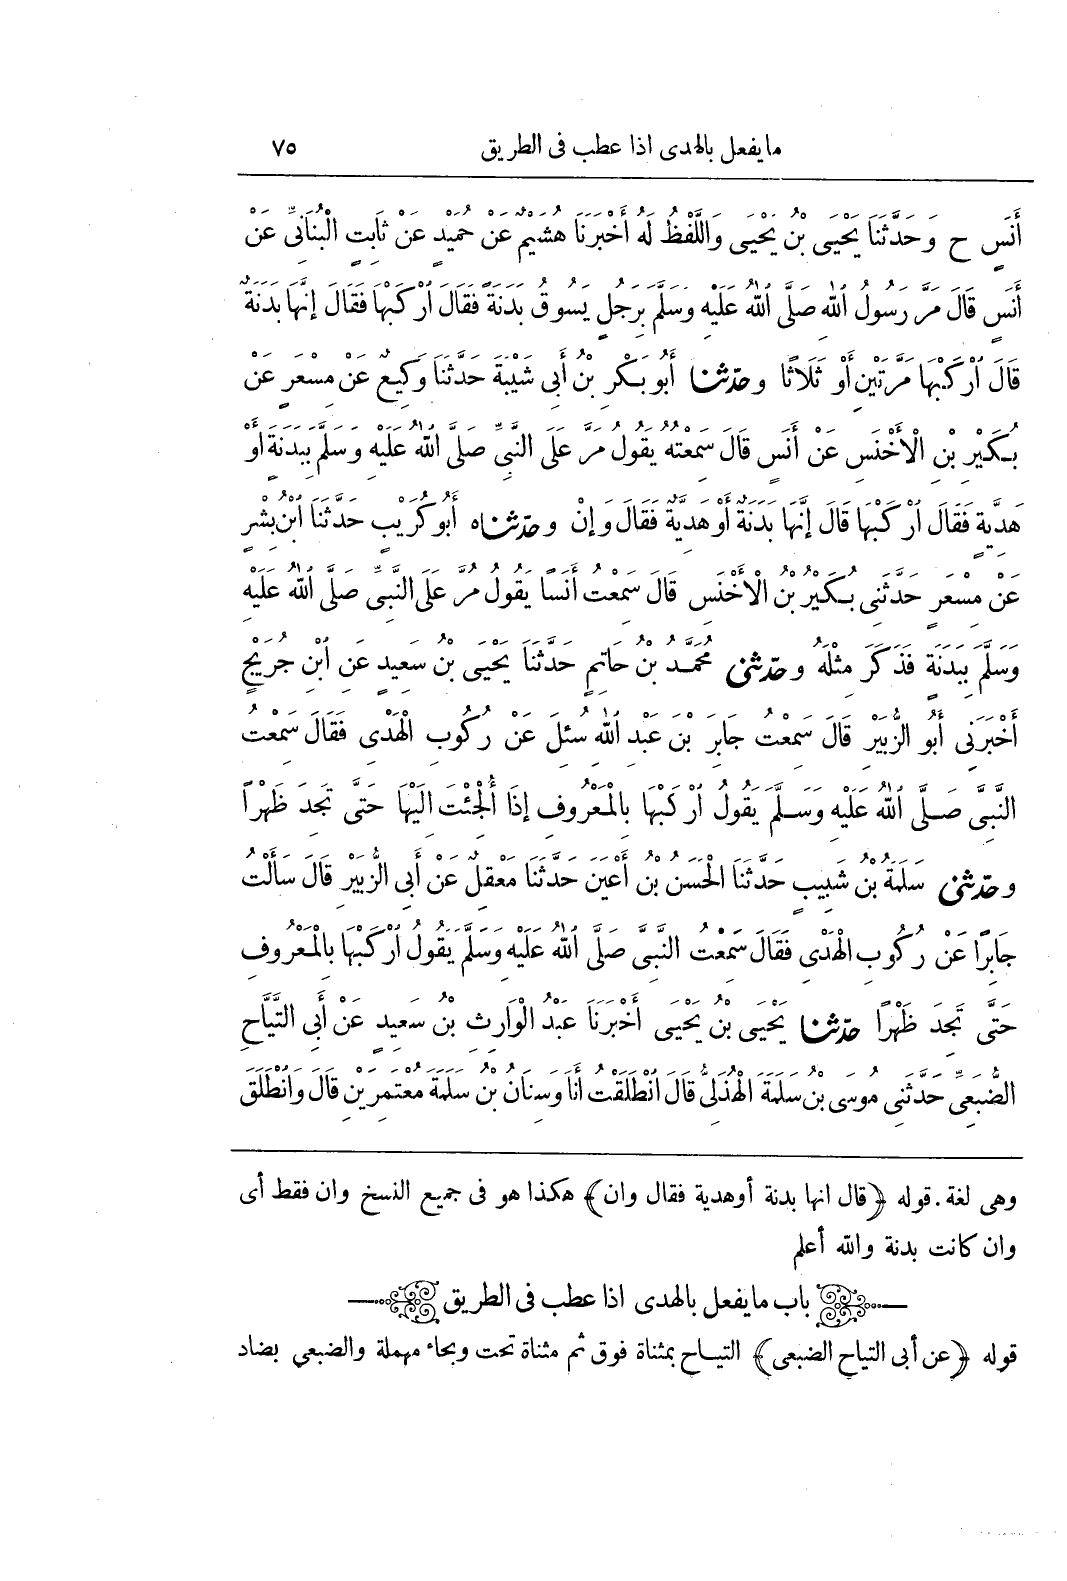 ما يفعل بالهدى اذا عطب فى الطريق ٧٥
أَنَسٍ ح وَحَدَّثَنَا يَحْيَى بْنُ يَحْيَى وَاللَّفْظُ لَهُ أَخْبَرَنَا هُشَيْمٌ عَنْ حُمَيْدٍ عَنْ ثَابِتٍ الْبُنَانِىِّ عَنْ
أَنَسٍ قَالَ مَرَّ رَسُولُ اللهِ صَلَّى اللهُ عَلَيْهِ وَسَلَّمَ بِرَجُلٍ يَسُوقُ بَدَنَةً فَقَالَ ارْكَبْهَا فَقَالَ إِنَّهَا بَدَنَةٌ
قَالَ ارْكَبْهَا مَرَّتَيْنِ أَوْ ثَلَاثًا وحدّثنا أَبُو بَكْرِ بْنُ أَبِى شَيْبَةَ حَدَّثَنَا وَكِيعٌ عَنْ مِسْعَرٍ عَنْ
بُكَيْرِ بْنِ الْأَخْنَسِ عَنْ أَنَسٍ قَالَ سَمِعْتُهُ يَقُولُ مُرَّ عَلَى النَّبِىِّ صَلَّى اللهُ عَلَيْهِ وَسَلَّمَ بِبَدَنَةٍ أَوْ
هَدِيَّةٍ فَقَالَ ارْكَبْهَا قَالَ إِنَّهَا بَدَنَةٌ أَوْ هَدِيَّةٌ فَقَالَ وَإِنْ وحدّثناه أَبُو كُرَيْبٍ حَدَّثَنَا ابْنُ بِشْرٍ
عَنْ مِسْعَرٍ حَدَّثَنِى بُكَيْرُ بْنُ الْأَخْنَسِ قَالَ سَمِعْتُ أَنَسًا يَقُولُ مُرَّ عَلَى النَّبِىِّ صَلَّى اللهُ عَلَيْهِ
وَسَلَّمَ بِبَدَنَةٍ فَذَكَرَ مِثْلَهُ وحدّثنى مُحَمَّدُ بْنُ حَاتِمٍ حَدَّثَنَا يَحْيَى بْنُ سَعِيدٍ عَنِ ابْنِ جُرَيْجٍ
أَخْبَرَنِى أَبُو الزُّبَيْرِ قَالَ سَمِعْتُ جَابِرَ بْنَ عَبْدِ اللهِ سُئِلَ عَنْ رُكُوبِ الْهَدْىِ فَقَالَ سَمِعْتُ
النَّبِىَّ صَلَّى اللهُ عَلَيْهِ وَسَلَّمَ يَقُولُ ارْكَبْهَا بِالْمَعْرُوفِ إِذَا أُلْجِئْتَ اِلَيْهَا حَتَّى تَجِدَ ظَهْرًا
وحدّثنى سَلَمَةُ بْنُ شَبِيبٍ حَدَّثَنَا الْحَسَنُ بْنُ أَعْيَنَ حَدَّثَنَا مَعْقِلٌ عَنْ أَبِى الزُّبَيْرِ قَالَ سَأَلْتُ
جَابِرًا عَنْ رُكُوبِ الْهَدْىِ فَقَالَ سَمِعْتُ النَّبِىَّ صَلَّى اللهُ عَلَيْهِ وَسَلَّمَ يَقُولُ ارْكَبْهَا بِالْمَعْرُوفِ
حَتَّى تَجِدَ ظَهْرًا حدّثنا يَحْيَى بْنُ يَحْيَى أَخْبَرَنَا عَبْدُ الْوَارِثِ بْنُ سَعِيدٍ عَنْ أَبِى التَّيَّاحِ
الضُّبَعِىِّ حَدَّثَنِى مُوسَى بْنُ سَلَمَةَ الْهُذَلِىُّ قَالَ انْطَلَقْتُ أَنَا وَسِنَانُ بْنُ سَلَمَةَ مُعْتَمِرَيْنِ قَالَ وَانْطَلَقَ
وهى لغة . قوله ﴿قال انها بدنة أوهدية فقال وان﴾ هكذا هو فى جميع النسخ وان فقط أى
وان كانت بدنة والله أعلم
باب ما يفعل بالهدى اذا عطب فى الطريق
قوله ﴿عن أبى التياح الضبعى﴾ التياح بمثناة فوق ثم مثناة تحت وبحاء مهملة والضبعي بضاد